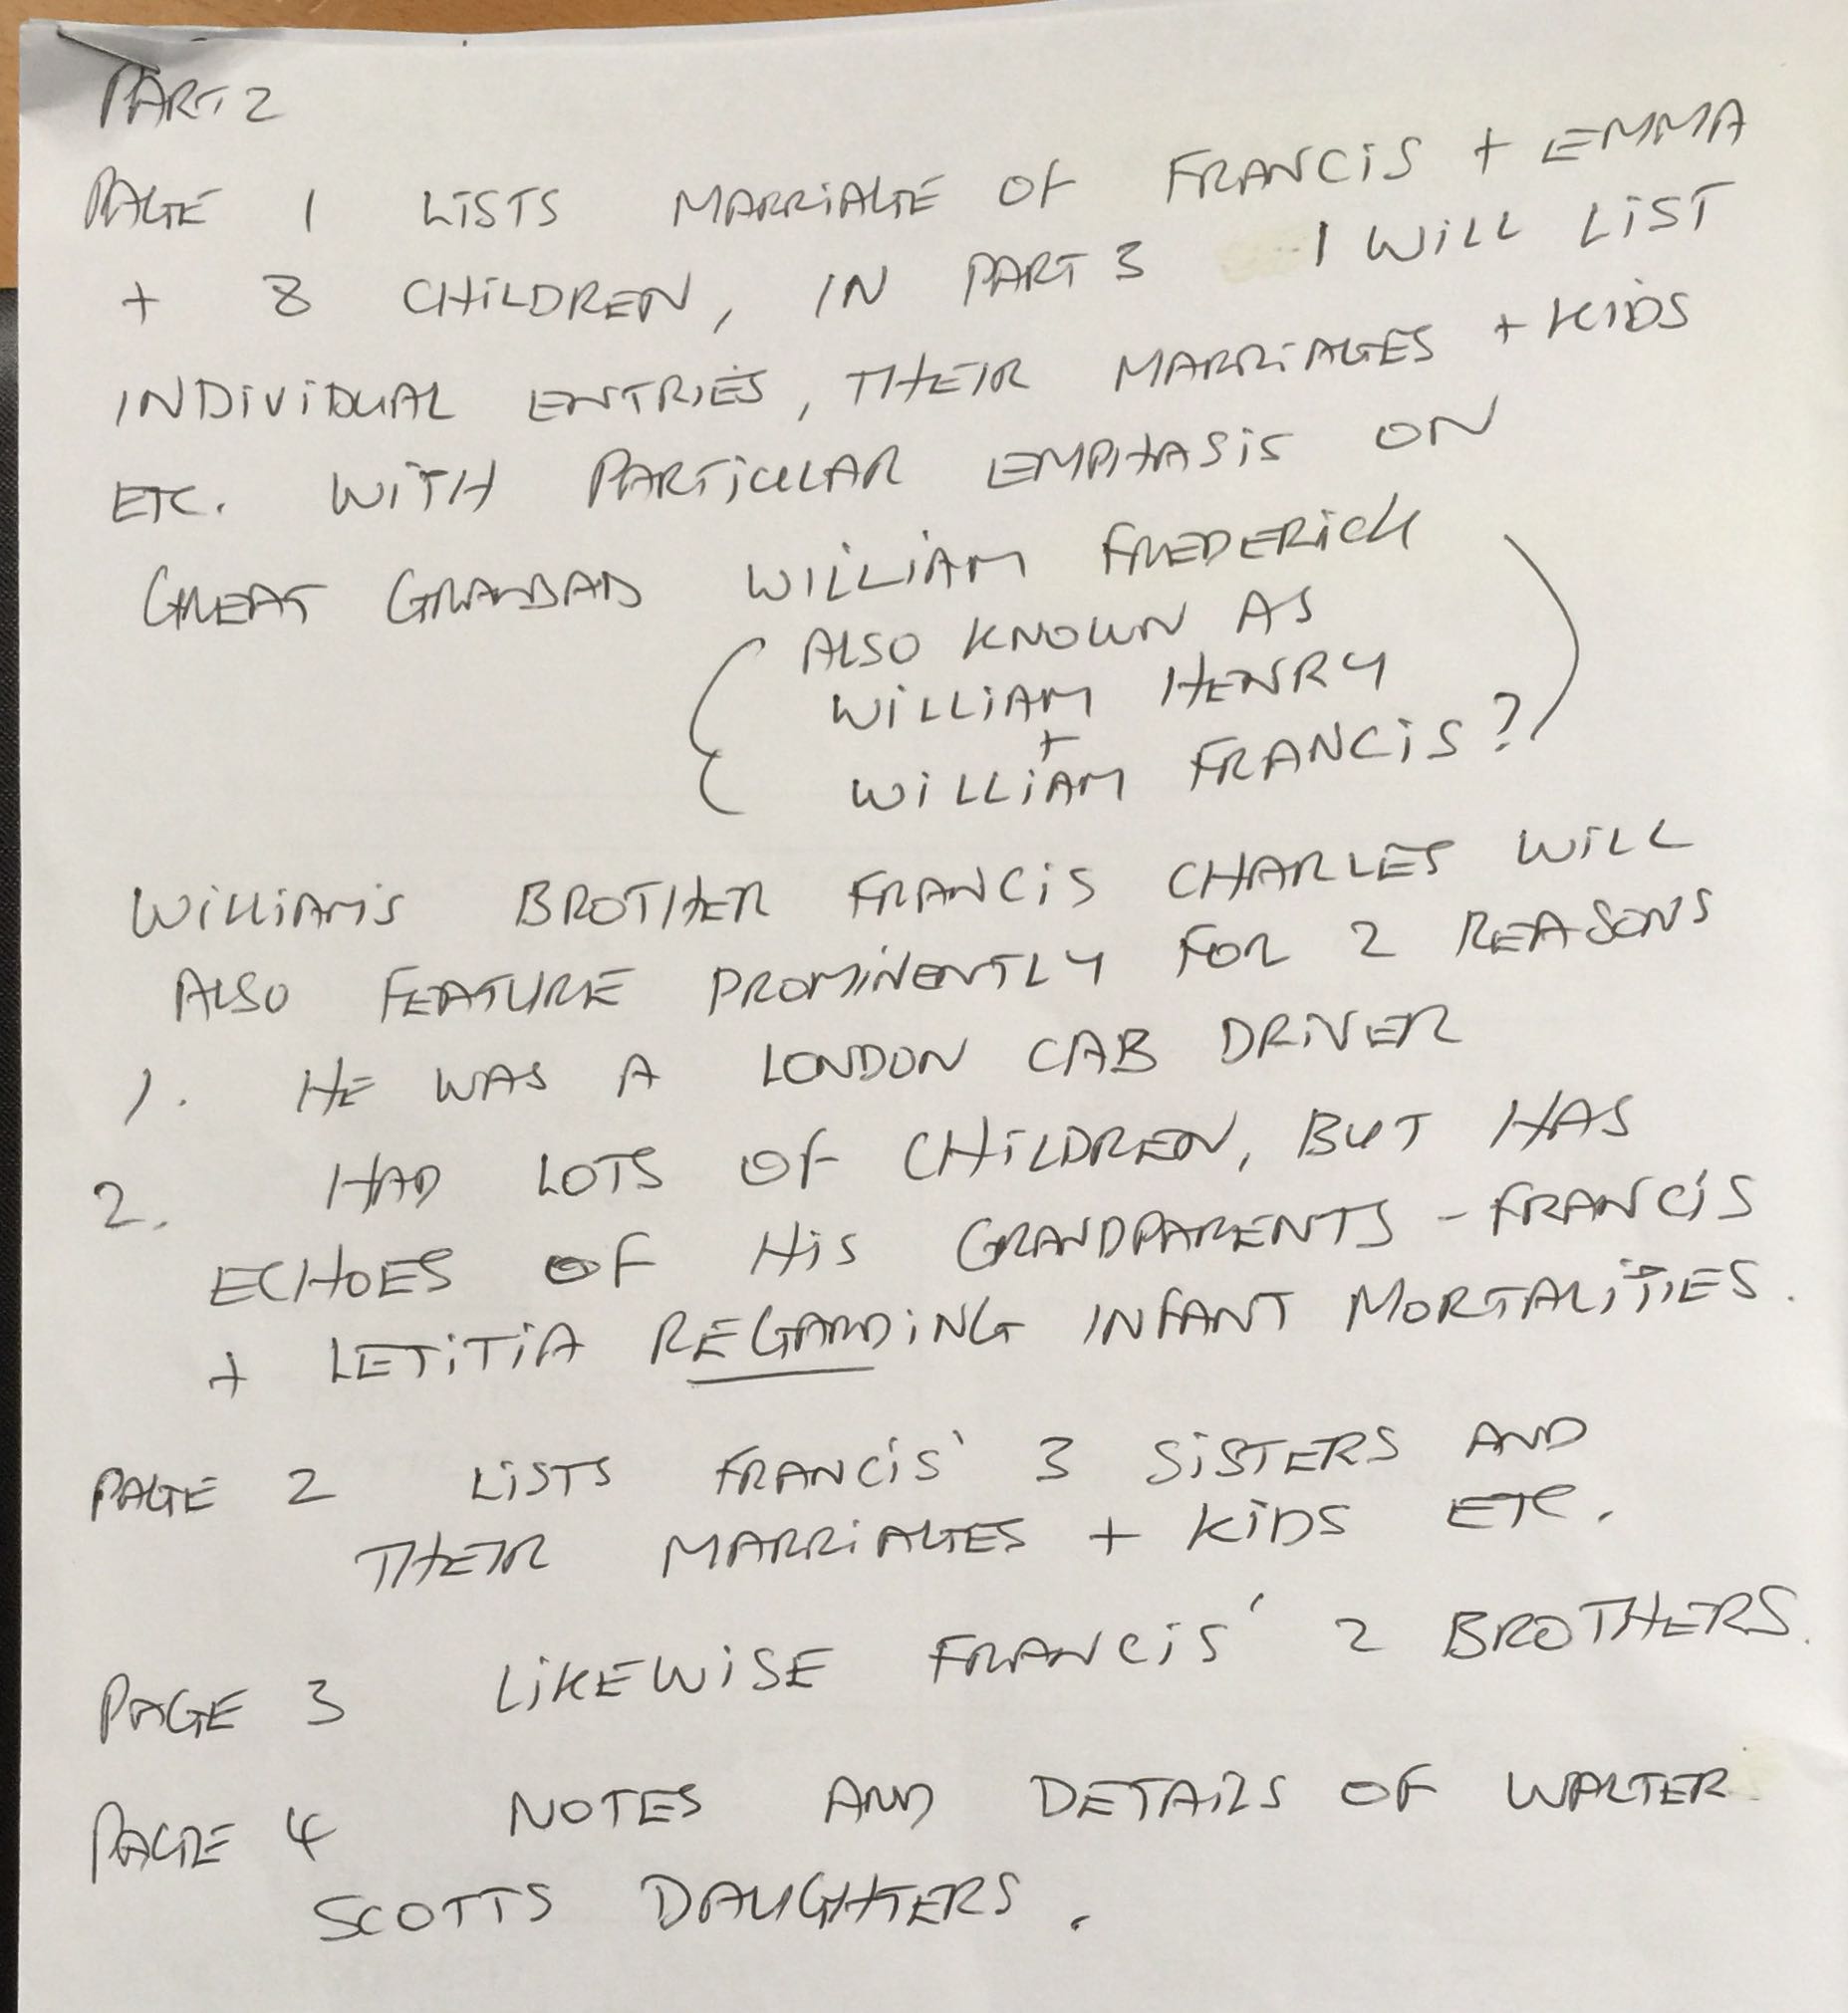 PART 2
PAGE 1 LISTS MARRIAGE OF FRANCIS + EMMA
+ 8 CHILDREN, IN PART 3 I WILL LIST
INDIVIDUAL ENTRIES, THEIR MARRIAGES + KIDS
ETC. WITH PARTICULAR EMPHASIS ON
GREAT GRANDAD WILLIAM FREDERICK
( ALSO KNOWN AS
WILLIAM HENRY
+
WILLIAM FRANCIS? )
WILLIAM'S BROTHER FRANCIS CHARLES WILL
ALSO FEATURE PROMINENTLY FOR 2 REASONS
1. HE WAS A LONDON CAB DRIVER
2. HAD LOTS OF CHILDREN, BUT HAS
ECHOES OF HIS GRANDPARENTS - FRANCIS
+ LETITIA REGARDING INFANT MORTALITIES.
PAGE 2 LISTS FRANCIS' 3 SISTERS AND
THEIR MARRIAGES + KIDS ETC.
PAGE 3 LIKEWISE FRANCIS' 2 BROTHERS.
PAGE 4 NOTES AND DETAILS OF WALTER
SCOTTS DAUGHTERS.